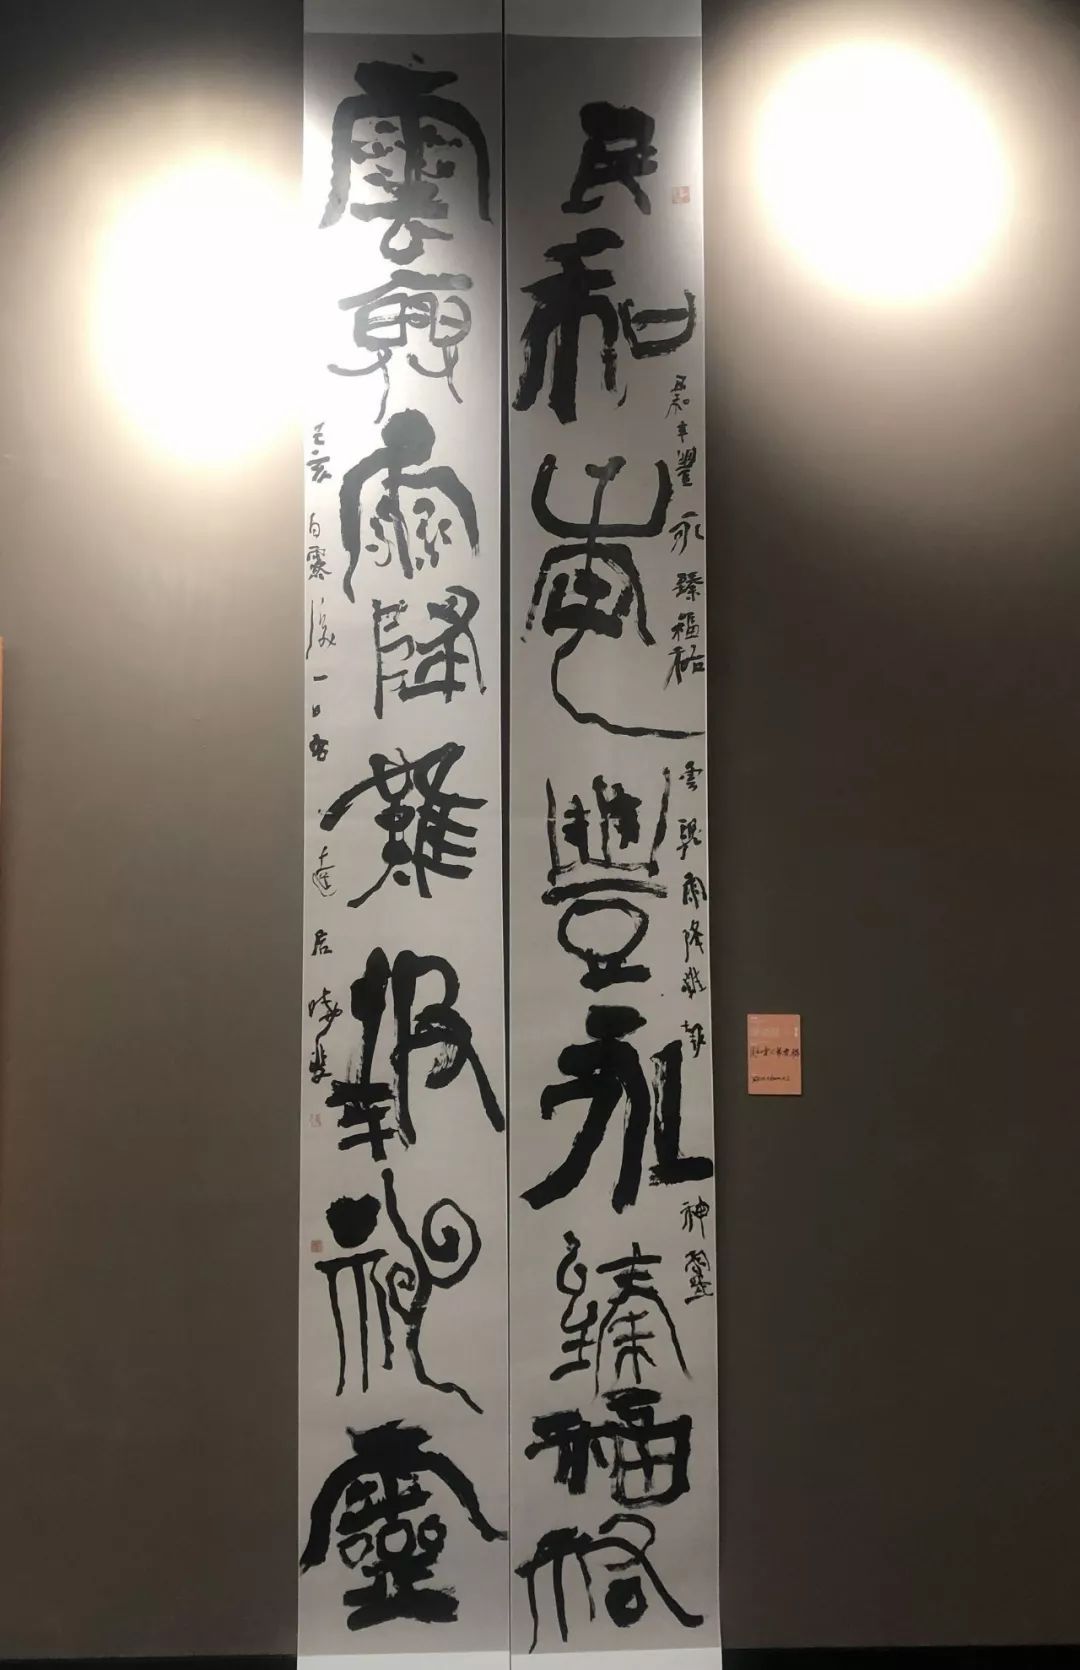 民和年豐永臻福祐
民和年豐永臻福祐雲興雨降難報神靈
雲興雨降難報神靈
己亥白露後一日書